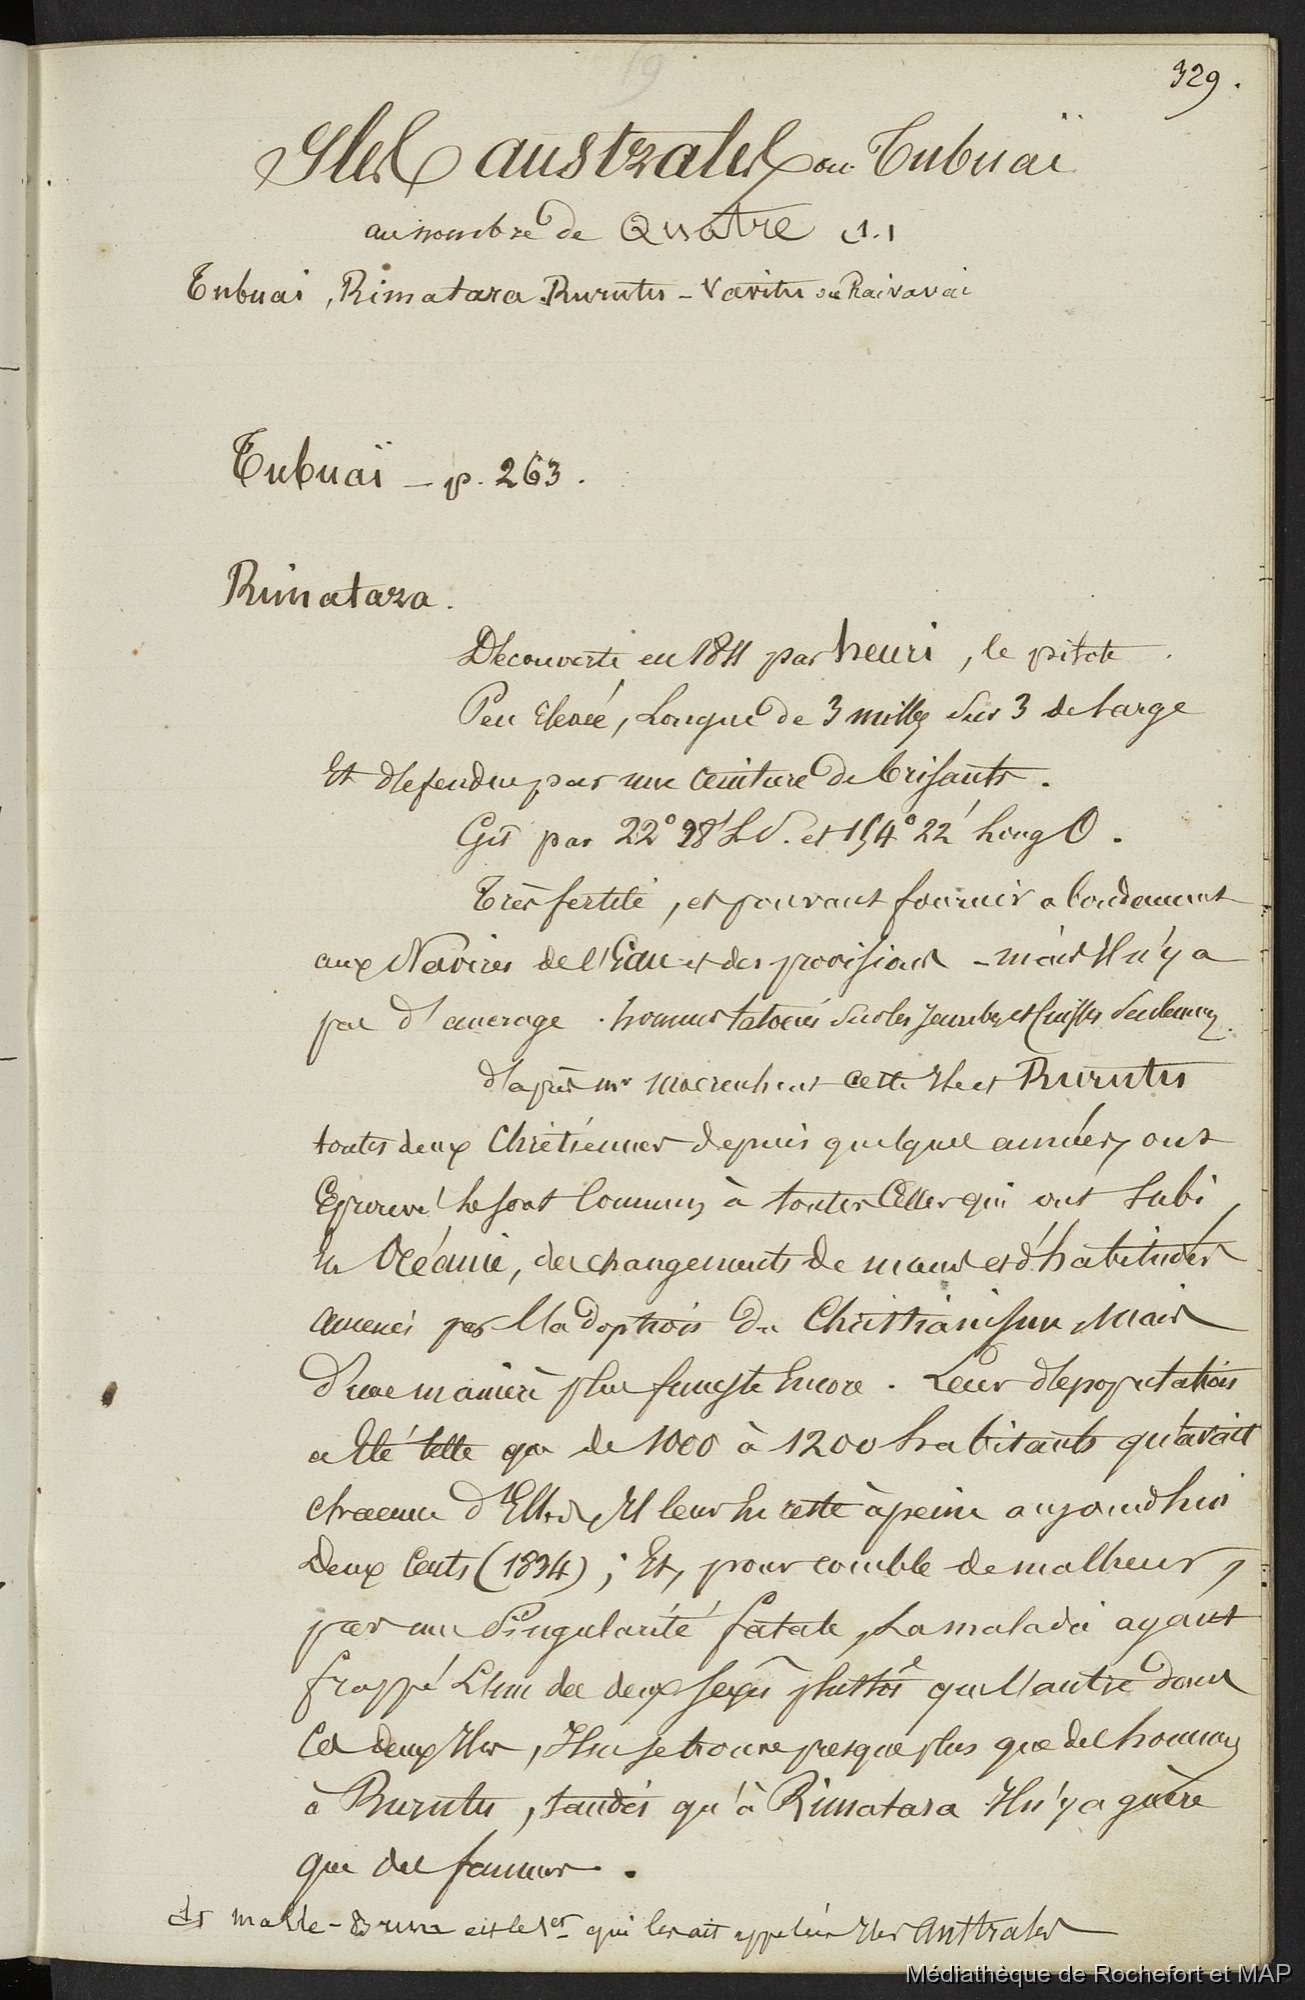 19
329.
Iles australes ou Tubuaï
au nombre de Quatre (1.)
Tubuai, Rimatara, Rurutu - Vavitu ou Raivavai
Tubuaï - p. 263.
Rimatara.
Découverte en 1811 par henri, le pilote.
Peu Elevée, Longue de 3 milles Sur 3 de large
Et défendue par une ceinture de brisants.
Gît par 22° 28' L S. et 154° 22' Long O.
Très fertile, et pouvant fournir abondament
aux Navires de l'Eau et des provisions - mais Il n'y a
pas d'ancrage. hommes tatoués Sur les Jambes et Cuisses Seulement.
d'après mr Moerenhout Cette Ile et Rurutu
toutes deux Chrétiennes depuis quelques années, ont
Eprouvé le sort Commun à toutes Celles qui ont Subi,
En Océanie, des changements de mœurs et d'habitudes
amenés par l'adoption du Christianisme, Mais
d'une manière plus funeste Encore. Leur dépopulation
a Eté telle que de 1000 à 1200 habitants qu'avait
chacune d'Elles, Il leur en reste à peine aujourdhui
Deux Cents (1834); Et, pour comble de malheur,
par une Singularité fatale, La maladie ayant
frappé L'un des deux sexes plutôt que l'autre dans
Ces deux Iles, Il ne se trouve presque plus que des hommes
à Rurutu, tandis qu'à Rimatara Il n'y a guère
que des femmes.
(1) Malte-Brun est le 1er qui les ait appelées Iles Australes
Médiathèque de Rochefort et MAP